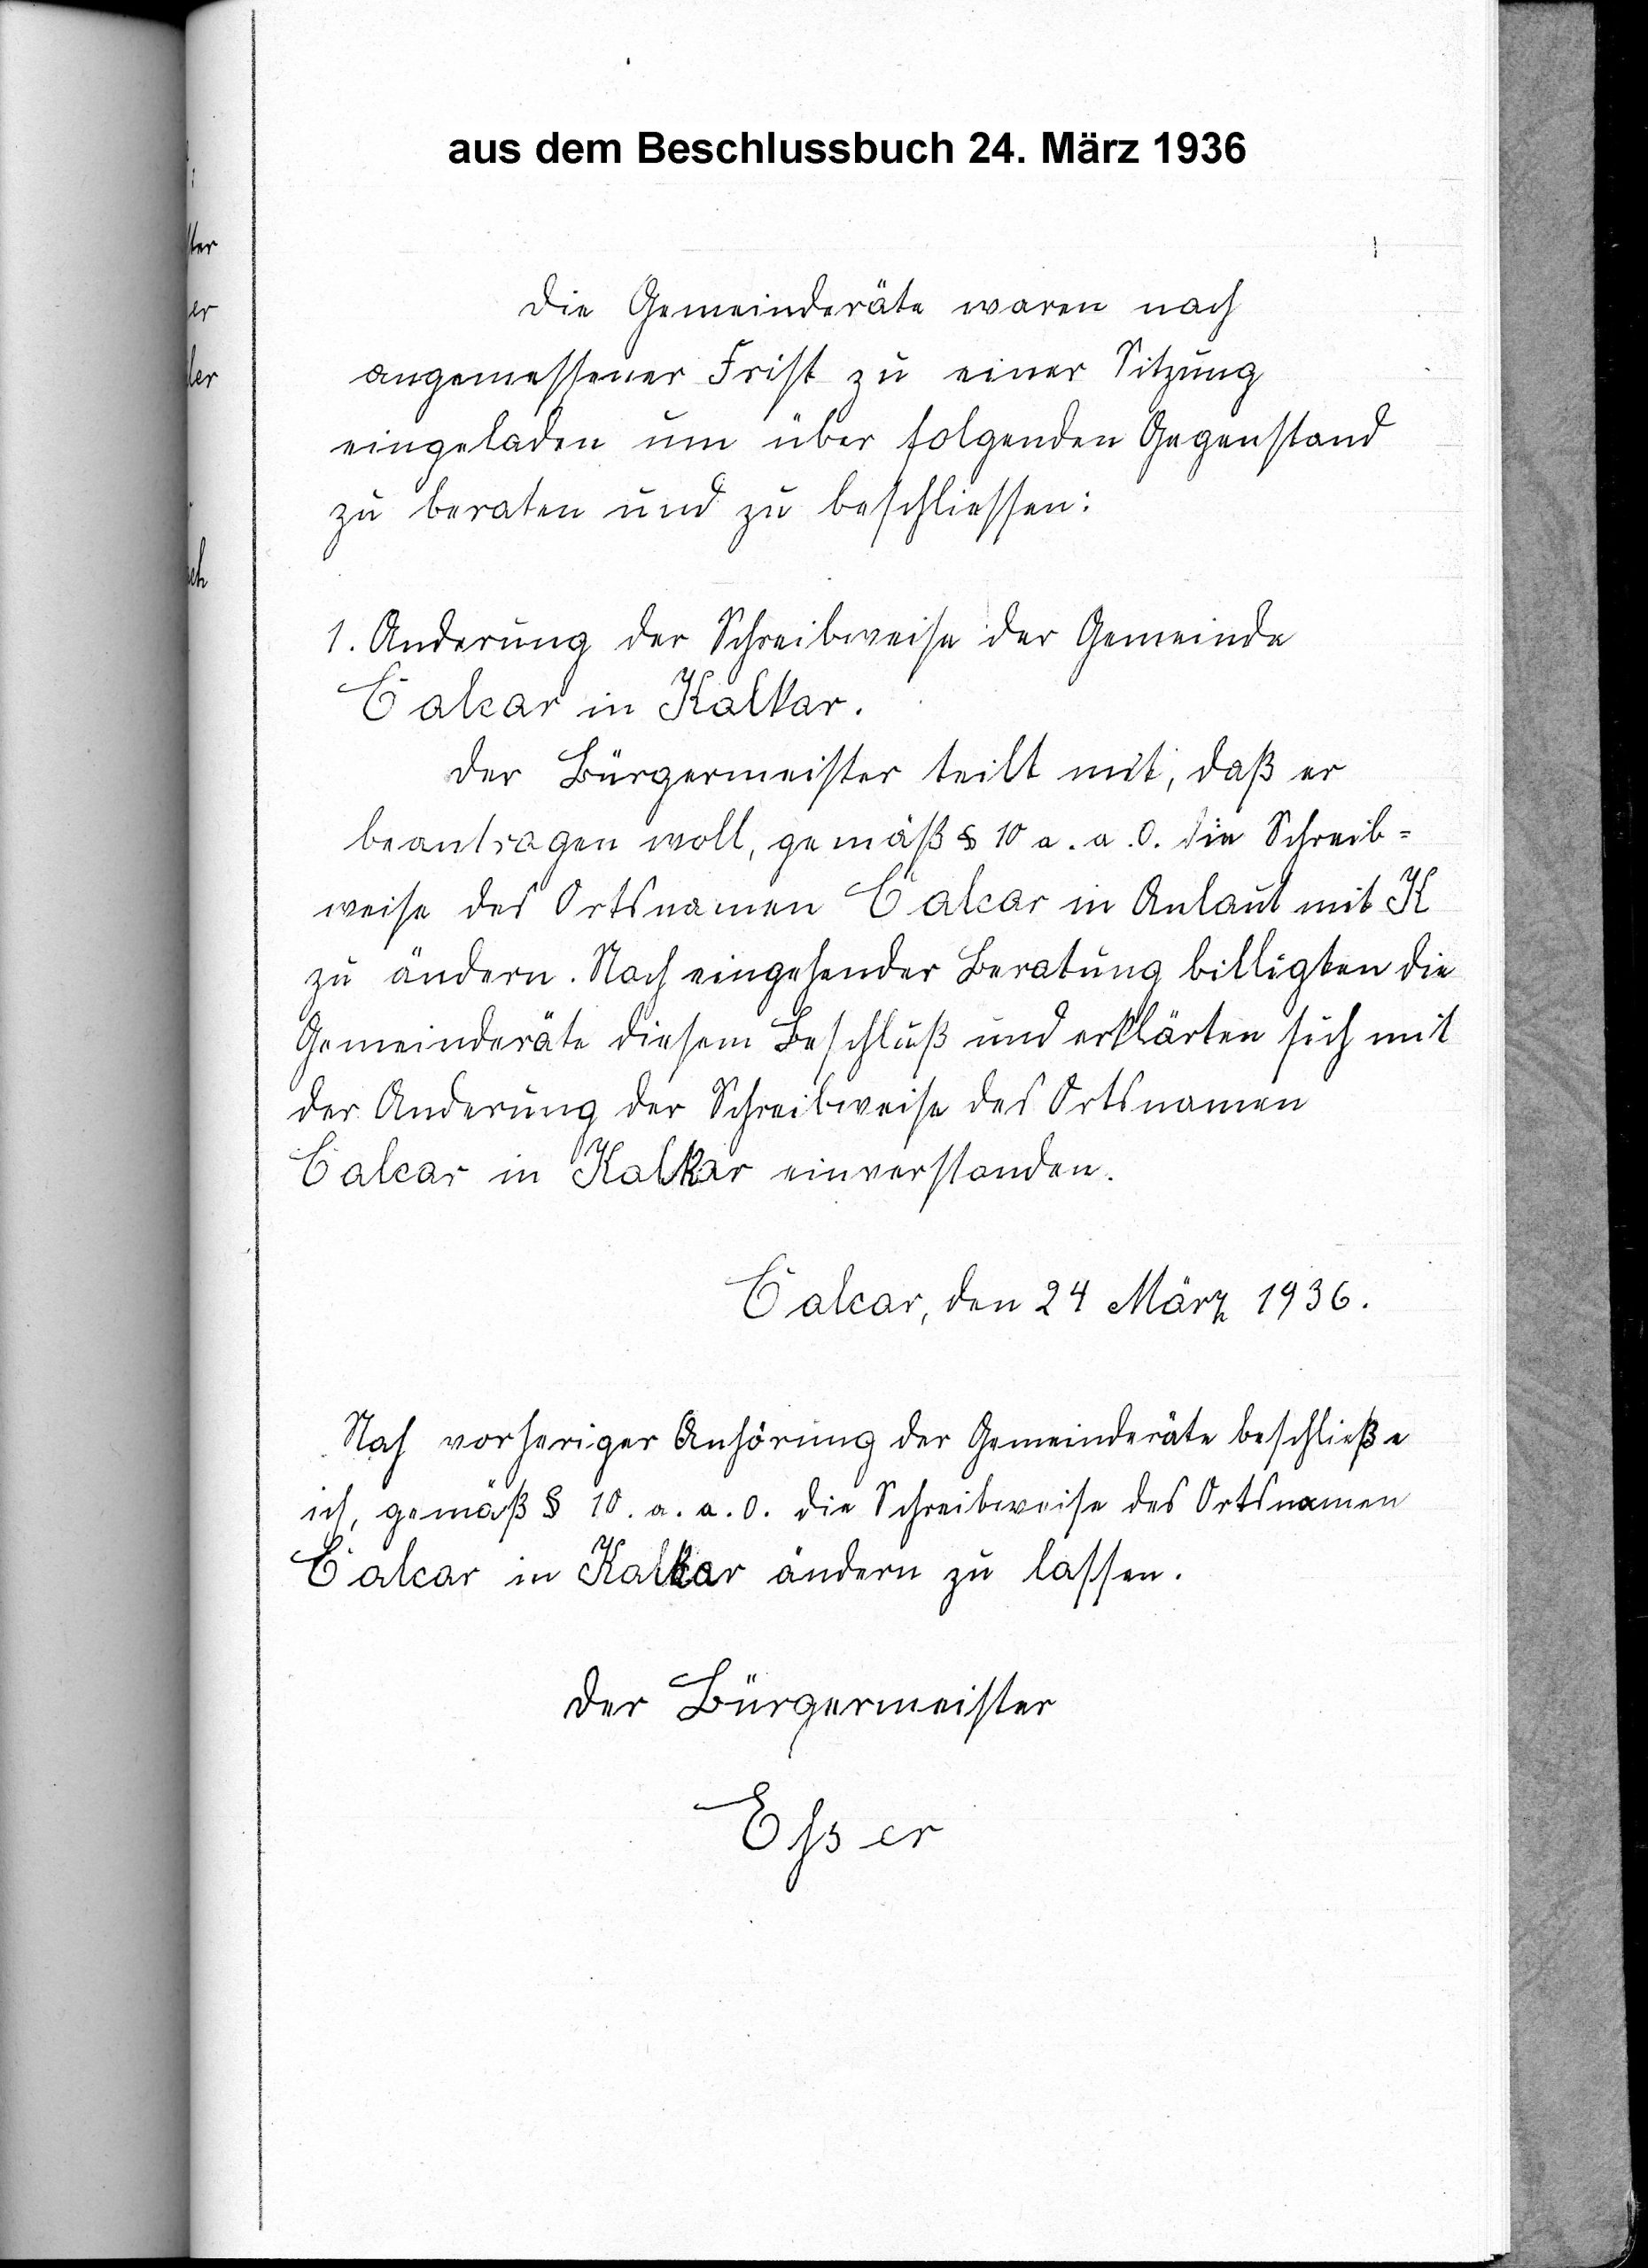 aus dem Beschlussbuch 24. März 1936
Die Gemeinderäte waren nach
angemessener Frist zu einer Sitzung
eingeladen um über folgenden Gegenstand
zu beraten und zu beschliessen:
1. Anderung der Schreibweise der Gemeinde
Calcar in Kalkar.
Der Bürgermeister teilt mit, daß er
beantragen woll, gemäß § 10 a. a. O. die Schreib=
weise des Ortsnamen Calcar in Anlaut mit K
zu ändern. Nach eingehender Beratung billigten die
Gemeinderäte diesem Beschluß und erklärten sich mit
der Anderung der Schreibweise des Ortsnamen
Calcar in Kalkar einverstanden.
Calcar, den 24 März 1936.
Nach vorheriger Anhörung der Gemeinderäte beschließe
ich, gemäß § 10. a. a. O. die Schreibweise des Ortsnamen
Calcar in Kalkar ändern zu lassen.
Der Bürgermeister
Esser